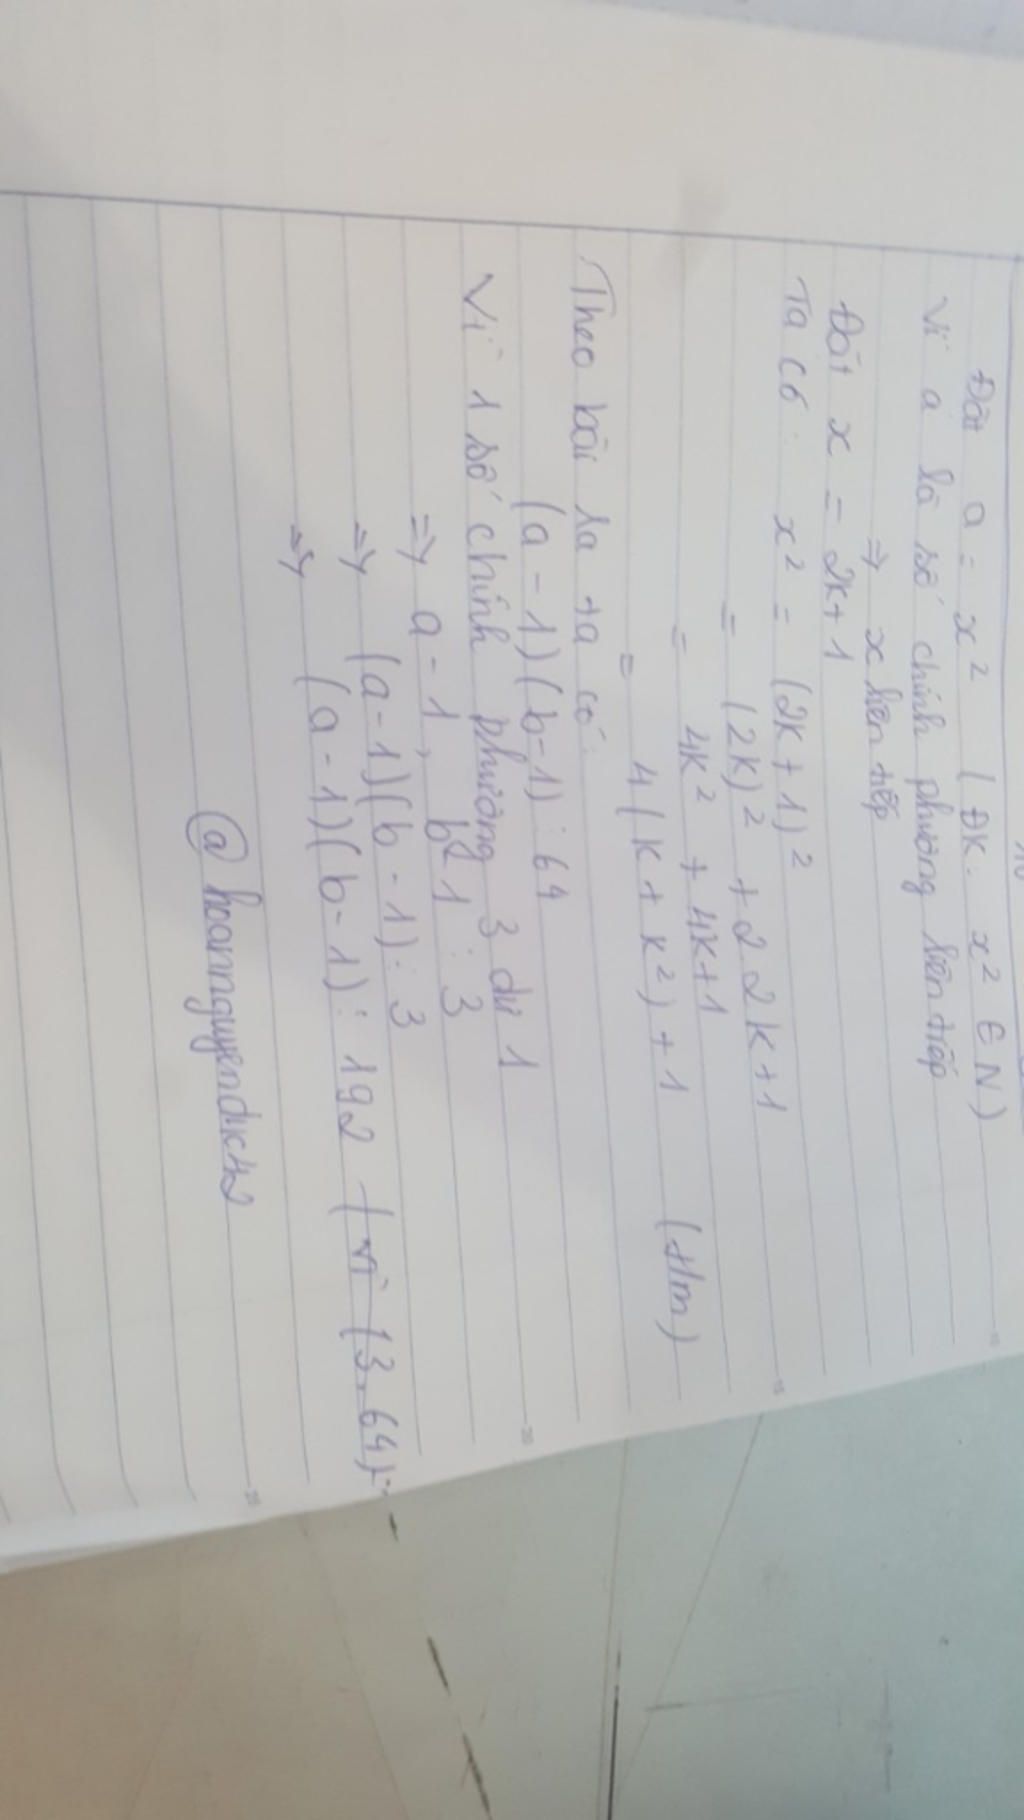 Đặt a = x² (ĐK. x² ∈ N)
Vì a là số chính phương liên tiếp
⇒ x liên tiếp
Đặt x = 2k+1
Ta có: x² = (2k+1)²
= (2k)² + 2.2k+1
= 4k² + 4k+1
= 4(k+k²)+1 (t/m)
Theo bài ra ta có:
(a-1)(b-1) ⋮ 64
Vì 1 số chính phương 3 dư 1
⇒ a-1, b-1 ⋮ 3
⇒ (a-1)(b-1) ⋮ 3
⇒ (a-1)(b-1) ⋮ 192 (vì (3.64)
@hoannguyendk42
15
20
25